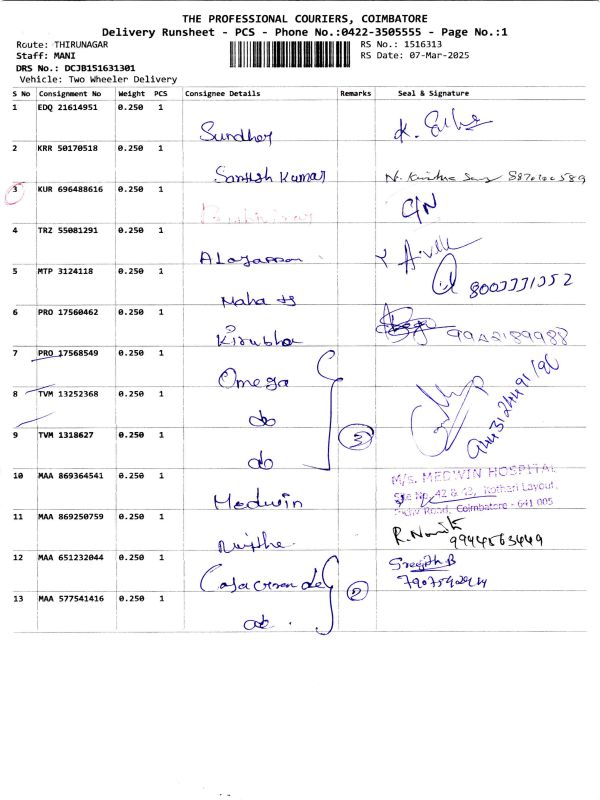 THE PROFESSIONAL COURIERS, COIMBATORE
Delivery Runsheet - PCS - Phone No.:0422-3505555 - Page No.:1
Route: THIRUNAGAR RS No.: 1516313
Staff: MANI RS Date: 07-Mar-2025
DRS No.: DCJB151631301
Vehicle: Two Wheeler Delivery
S No Consignment No Weight PCS Consignee Details Remarks Seal & Signature
1 EDQ 21614951 0.250 1
Sundher
2 KRR 50170518 0.250 1
Santhsh Kumar
3 KUR 696488616 0.250 1
C/N
4 TRZ 55081291 0.250 1
5 MTP 3124118 0.250 1
Maha
6 PRO 17560462 0.250 1
Kirubha 9942189988
7 PRO 17568549 0.250 1
Omega
8 TVM 13252368 0.250 1
do
9 TVM 1318627 0.250 1 3
do
10 MAA 869364541 0.250 1 M/s. MEDWIN HOSPITAL
Medwin Site No. 42 & 43, Kothari Layout,
Road, Coimbatore - 641 005
11 MAA 869250759 0.250 1
9944563449
12 MAA 651232044 0.250 1 Sreejith B
2 7907542944
13 MAA 577541416 0.250 1
do.